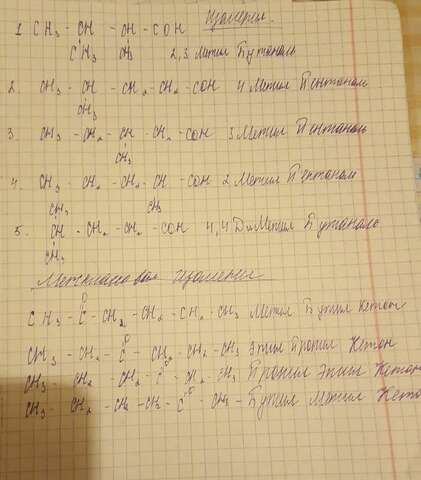 Изомерия.
1. CH3 - CH - CH - COH
CH3 CH3 2,3 Метил Бутаналь
2. CH3 - CH - CH2 - CH2 - COH 4 Метил Пентаналь
CH3
3. CH3 - CH2 - CH - CH2 - COH 3 Метил Пентаналь
CH3
4. CH3 - CH2 - CH2 - CH - COH 2 Метил Пентаналь
CH3 CH3
5. CH - CH2 - CH2 - COH 4,4 ДиМетил Бутаналь
CH3
Межклассовая изомерия
O
CH3 - C - CH2 - CH2 - CH2 - CH3 Метил Бутил Кетон
O
CH3 - CH2 - C - CH2 - CH2 - CH3 Этил Пропил Кетон
CH3 - CH2 - CH2 - C=O - CH2 - CH3 Пропил Этил Кетон
CH3 - CH2 - CH2 - CH2 - C=O - CH3 - Бутил Метил Кето